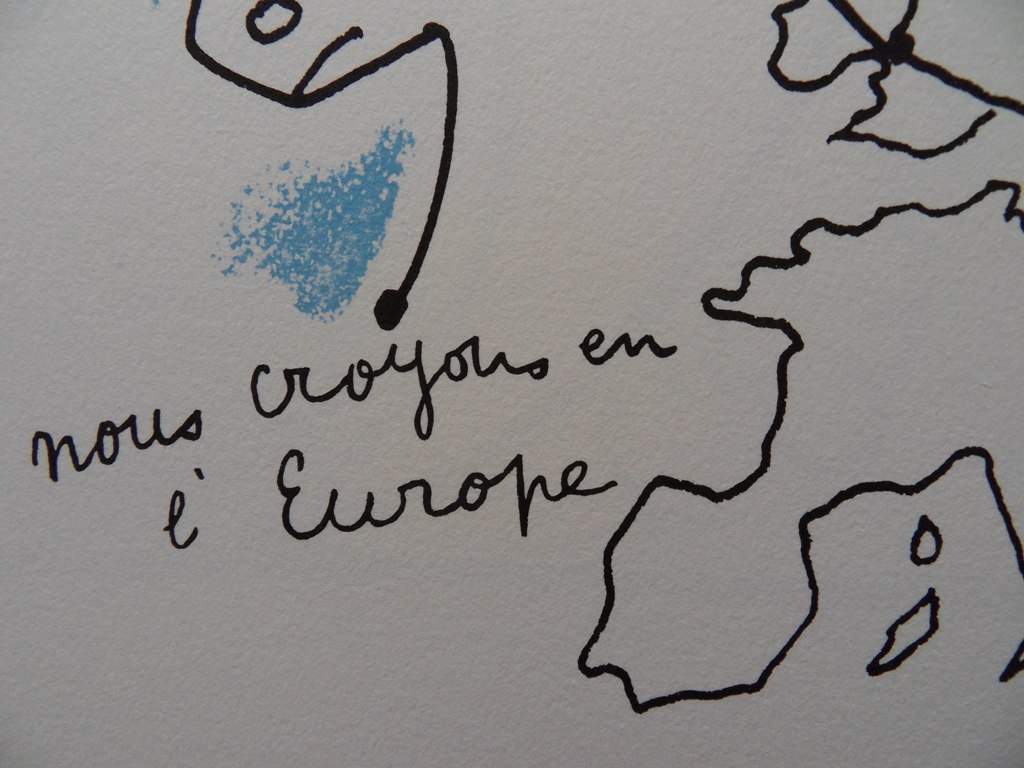 nous croyons en
l'Europe